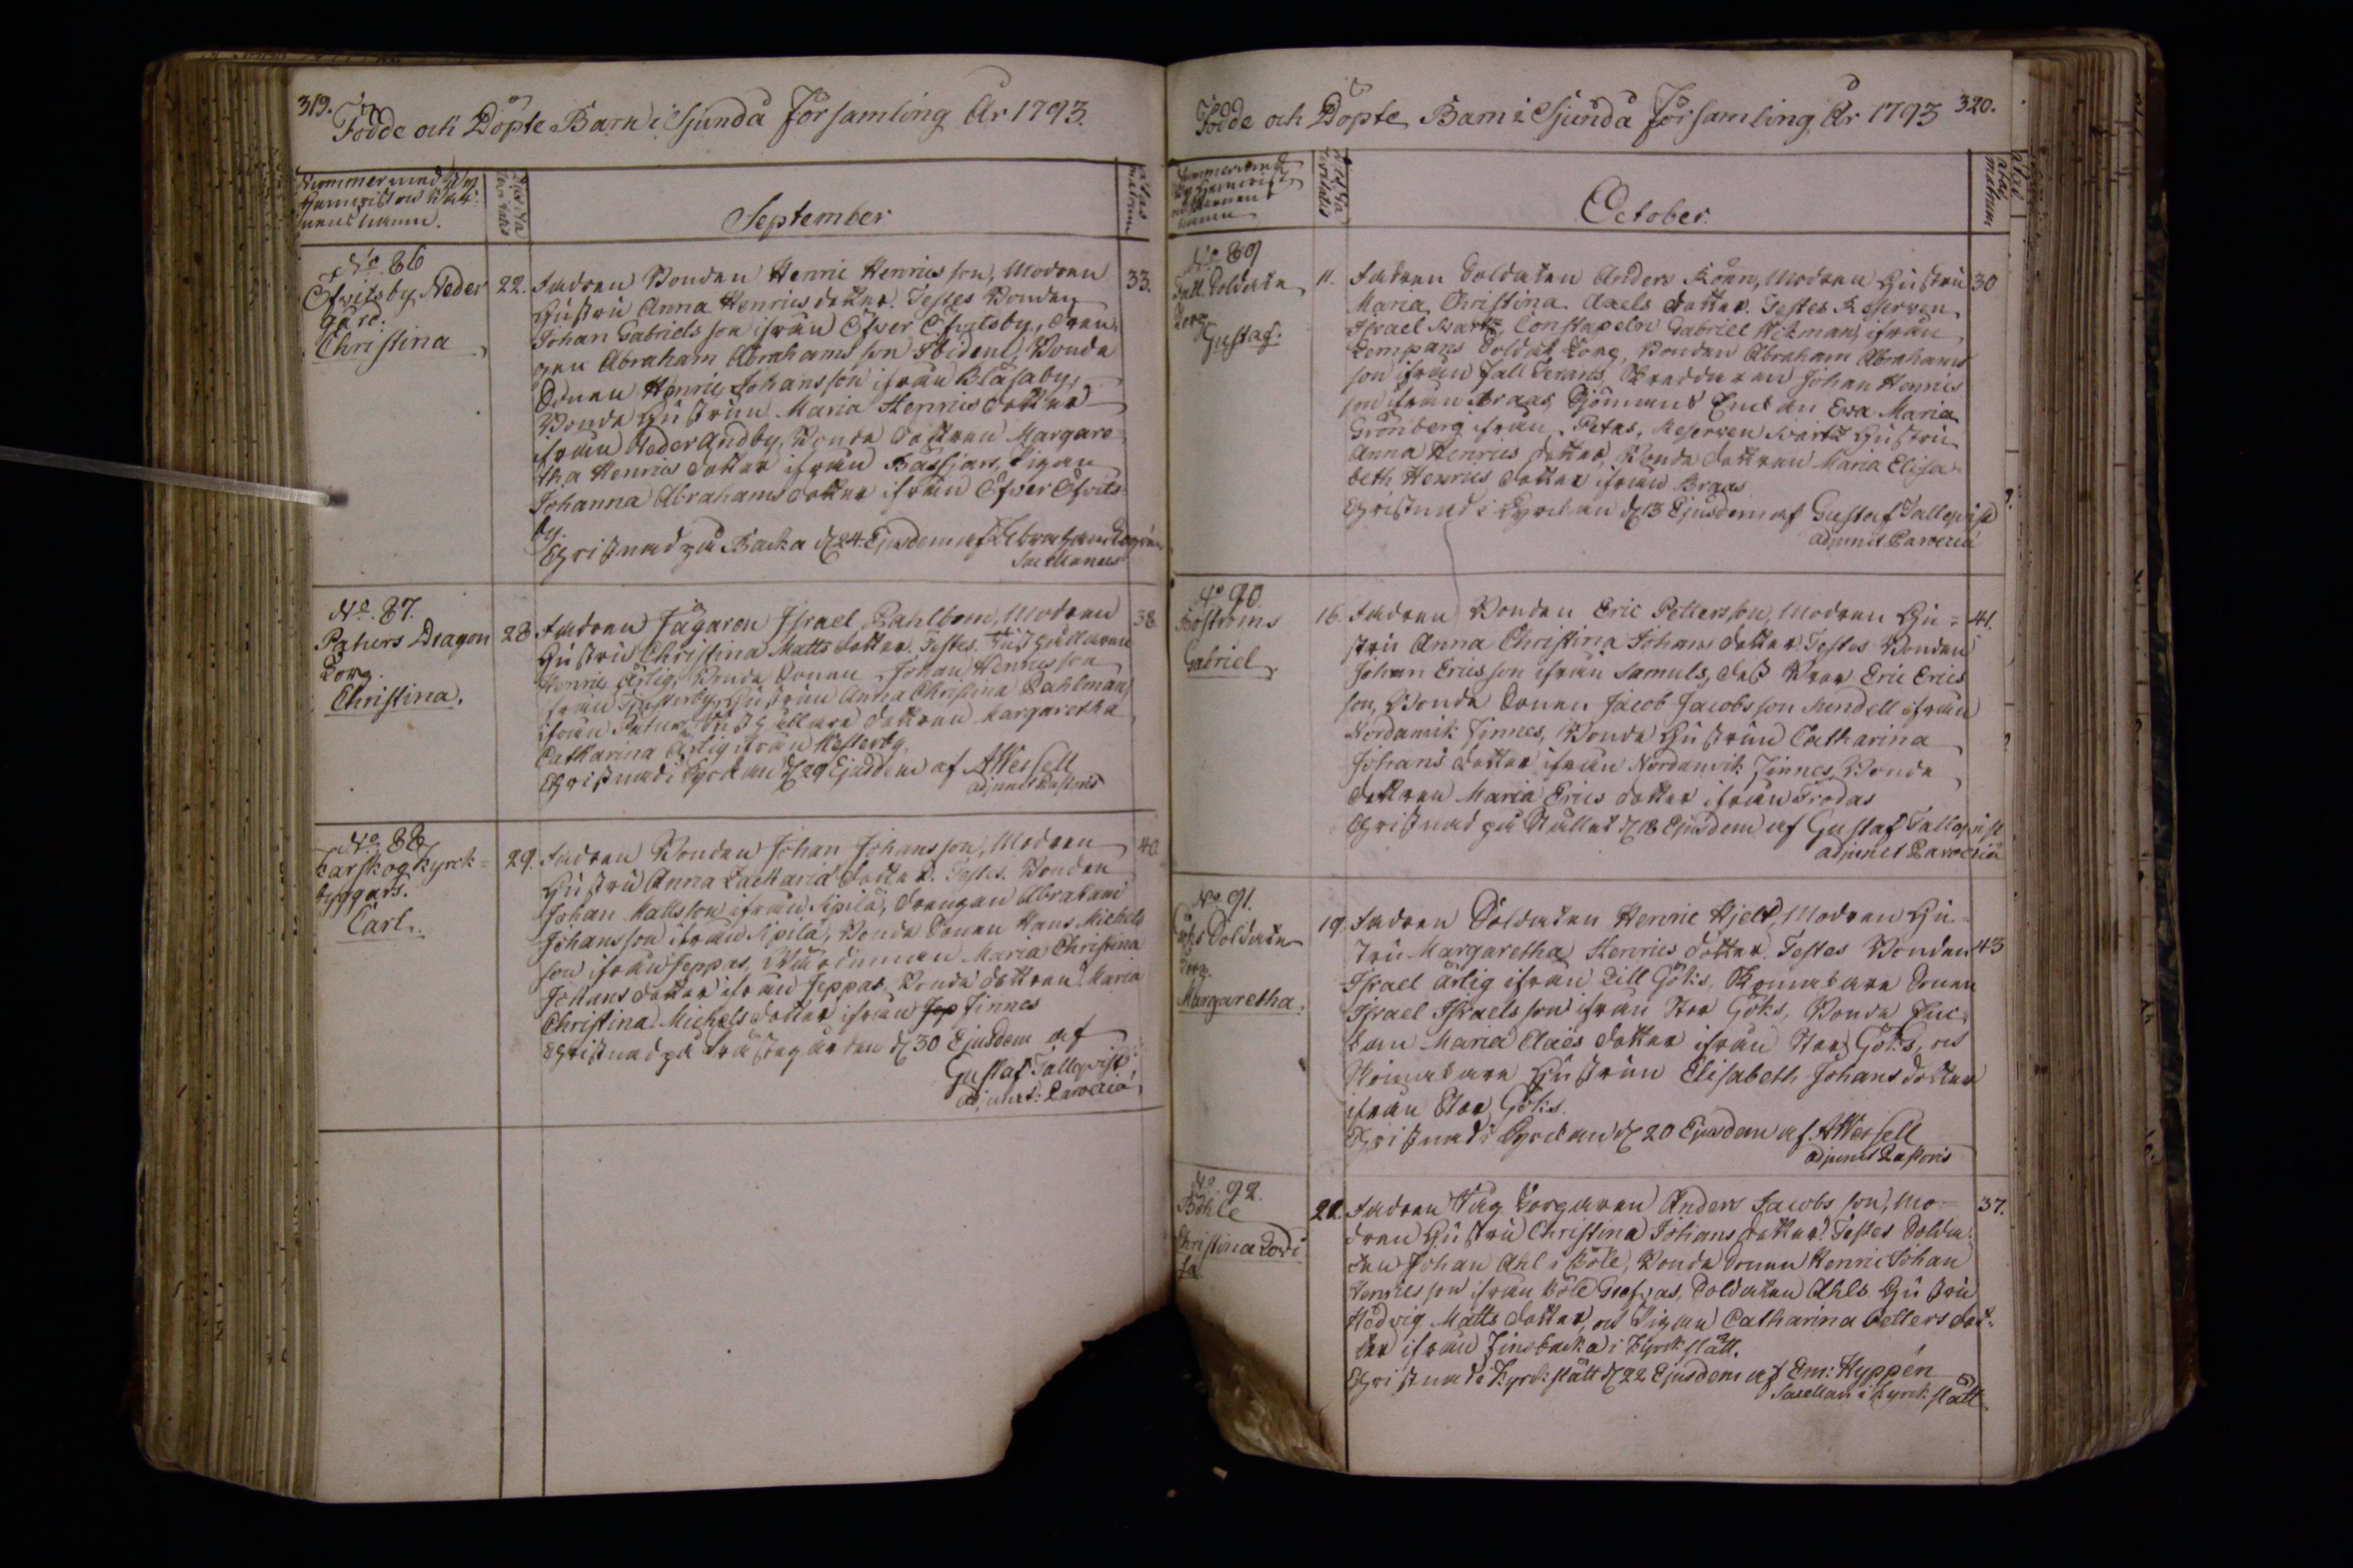 319.
Födde och Döpte Barn i Sjundå Församling År 1793.
September
Ætas
matrum
No. 86
Ofvitsby Neder
gård.
Christina
22.
33.
Fadren Bonden Henric Henricsson, Modren
Hustru Anna Henricsdotter. Testes Bonden
Johan Gabrielsson ifrån Öfver Ofvitsby, dren-
gen Abraham Abrahamsson Ibident, Bonda
Sonen Henric Johansson ifrån Blåsaby,
Bonda Hustrun Maria Henricsdotter
ifrån Nederandby, Bonda dottren Margare-
tha Henricsdotter ifrån Bässjars, Pigan
Johanna Abrahamsdotter ifrån Öfver Ofvits-
by.
Christnad på Backa d 24 Ejusdem af Abraham
Sacellanus
No. 87.
Paturs Dragon
Torp.
Christina.
28.
38
Fadren Jägaren Israel Dahlbom, Modren
Hustru Christina Mattsdotter. Testes
Henric Ärlig, Bonda Sonen Johan Henricsson
ifrån Hustrun Anna Christina Dahlman
ifrån Paturs, dottren Margaretha
Catharina Ärlig ifrån Westerby.
Christnad i Kyrckan d 29 Ejusdem af AWessell
adjunct Pastoris
No. 88
Karskog Kyrck-
byggars.
Carl.
29.
40.
Fadren Bonden Johan Johansson, Modren
Hustru Anna Zachariædotter. Testes Bonden
Johan Mattsson ifrån Sipilä, drengen Abraham
Johansson ifrån Sipilä, Bonda Sonen Hans Michels-
son ifrån Jeppas, Maria Christina
Johansdotter ifrån Jeppas, Bonda dottren Maria
Christina Michelsdotter ifrån Jep Finnes
Christnad på Prästegården d 30 Ejusdem af
Gustaf Tallqvist
adjunct: Paroecia
320.
Födde och Döpte Barn i Sjundå Församling År 1793
October.
ætas
matrum
No. 89
Soldate
Torp
Gustaf.
11.
30
Fadren Soldaten Anders Modren Hustru
Maria Christina Axelsdotter. Testes Reserven
Israel Svartz, Constapeln Gabriel Wikman, ifrån
Kompans Soldat Torp, Bonden Abraham Abrahams
son ifrån Johan Henrics
son ifrån Braas, Sjömans Enkan Eva Maria
Grönberg ifrån Petas, Reserven Svartz Hustru
Anna Henricsdotter, Bonda dottren Maria Elisa-
beth Henricsdotter ifrån Braas
Christnad i Kyrckan d 13 Ejusdem af Gustaf Tallqvist
adjunct Paroecia
No 90.
Boströms
Gabriel
16.
41.
Fadren Bonden Eric Pettersson, Modren Hu-
stru Anna Christina Johansdotter. Testes Bonden
Johan Ericsson ifrån Samuls, dess Bror Eric Erics
son, Bonda Sonen Jacob Jacobsson Sundell ifrån
Nordanvik Finnes, Bonda Hustrun Catharina
Johansdotter ifrån Nordanvik Finnes, Bonda
dottren Maria Ericsdotter ifrån Frodas
Christnad på Stället d 18 Ejusdem af Gustaf Tallqvist
adjunct Paroecia
No 91.
Göks Soldate
Torp.
Margaretha.
19.
43
Fadren Soldaten Henric Hjelt, Modren Hu-
stru Margaretha Henricsdotter. Testes Bonden
Israel Ärlig ifrån Lill Göks, Sonen
Israel Israelsson ifrån Stor Göks, Bonda Enc-
kan Maria Claësdotter ifrån Stor Göks, och
Hustrun Elisabeth Johansdotter
ifrån Stor Göks.
Christnad i Kyrckan d 20 Ejusdem af AWessell
adjunct Pastoris
No. 92.
Böhle
Christina Lovi
sa
21.
37.
Fadren Torparen Anders Jacobsson, Mo-
dren Hustru Christina Johansdotter. Testes Solda-
ten Johan Ahl i Böle, Bonda Sonen Henric Johan
Henricsson ifrån Böle Grefvas, Soldaten Ahls Hustru
Hedvig Mattsdotter, och Pigan Catharina Pettersdot-
ter ifrån Finsbacka i Kyrckslätt.
Christnad i Kyrckslätt d 22 Ejusdem af Em: Hyppén
Sacellan i Kyrckslätt